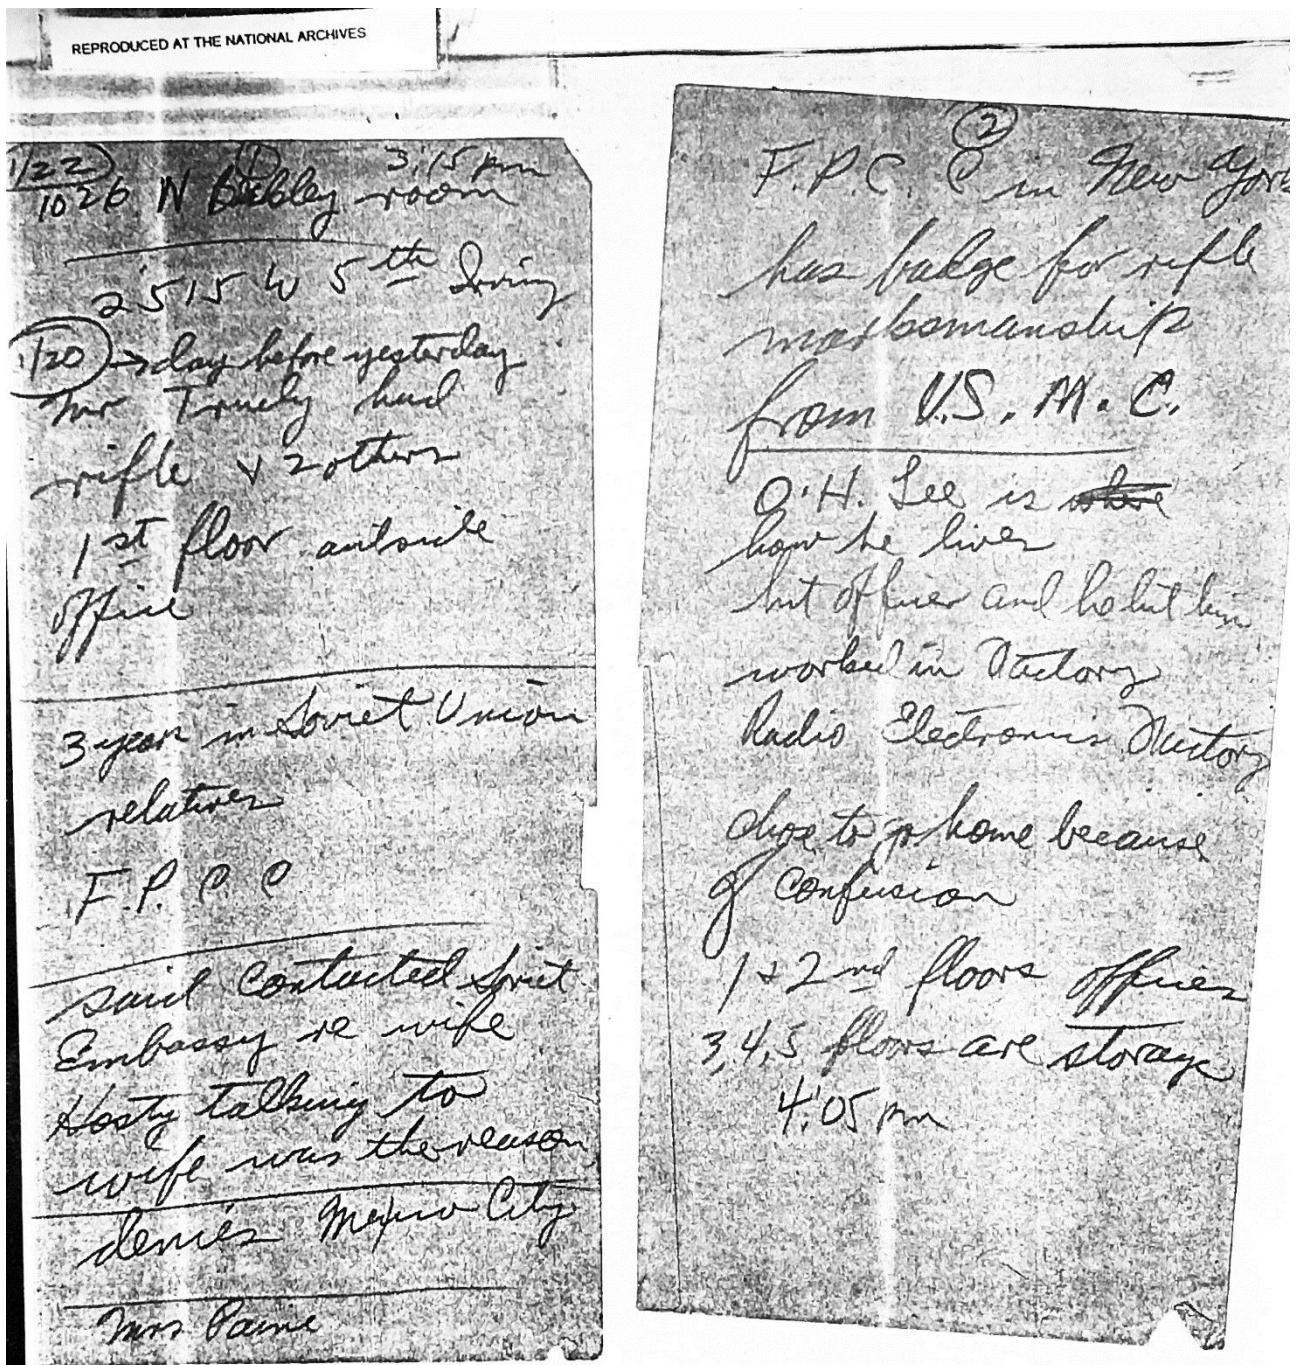 REPRODUCED AT THE NATIONAL ARCHIVES
1/22 ① 3:15 pm
1026 N Beckley room
2515 W 5th Irving
1/20 → day before yesterday
Mr Truely had
rifle & 2 others
1st floor outside
office
3 years in Soviet Union
relatives
F.P.C C
said contacted Soviet
Embassy re wife
Hosty talking to
wife was the reason
denies Mexico City
Mrs Paine
②
F.P.C. C in New York
has badge for rifle
marksmanship
from U.S.M.C.
O.H. Lee is where
how he lives
hit officer and he hit him
worked in Factory
Radio Electronics Factory
chose to go home because
of confusion
1 & 2nd floors offices
3,4,5 floors are storage
4:05 pm